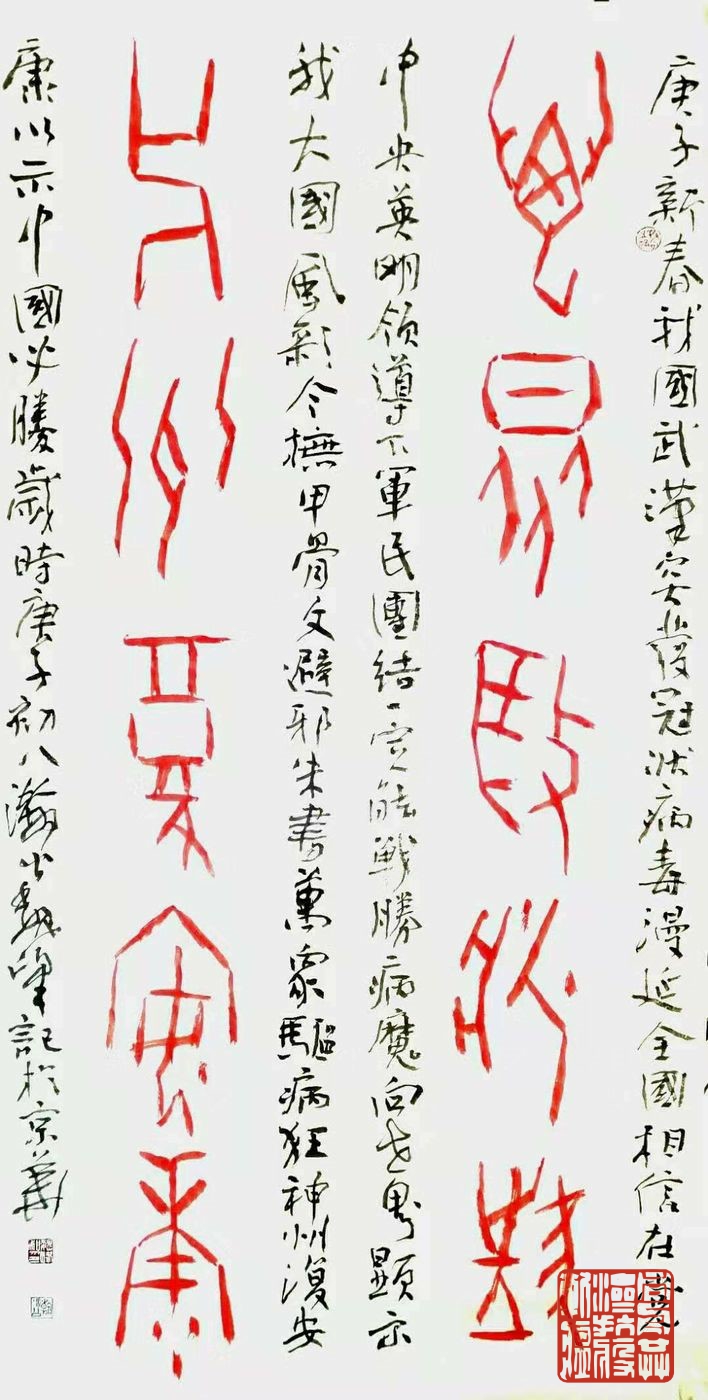 庚子新春我國武漢突發冠狀病毒漫延全國相信在黨
萬眾驅病狂
中央英明領導下軍民團結一定能戰勝病魔向世界顯示
我大國風彩今橅甲骨文避邪朱書萬眾驅病狂神州復安
神州復安康
康以示中國必勝歲時庚子初八瀚記於京華